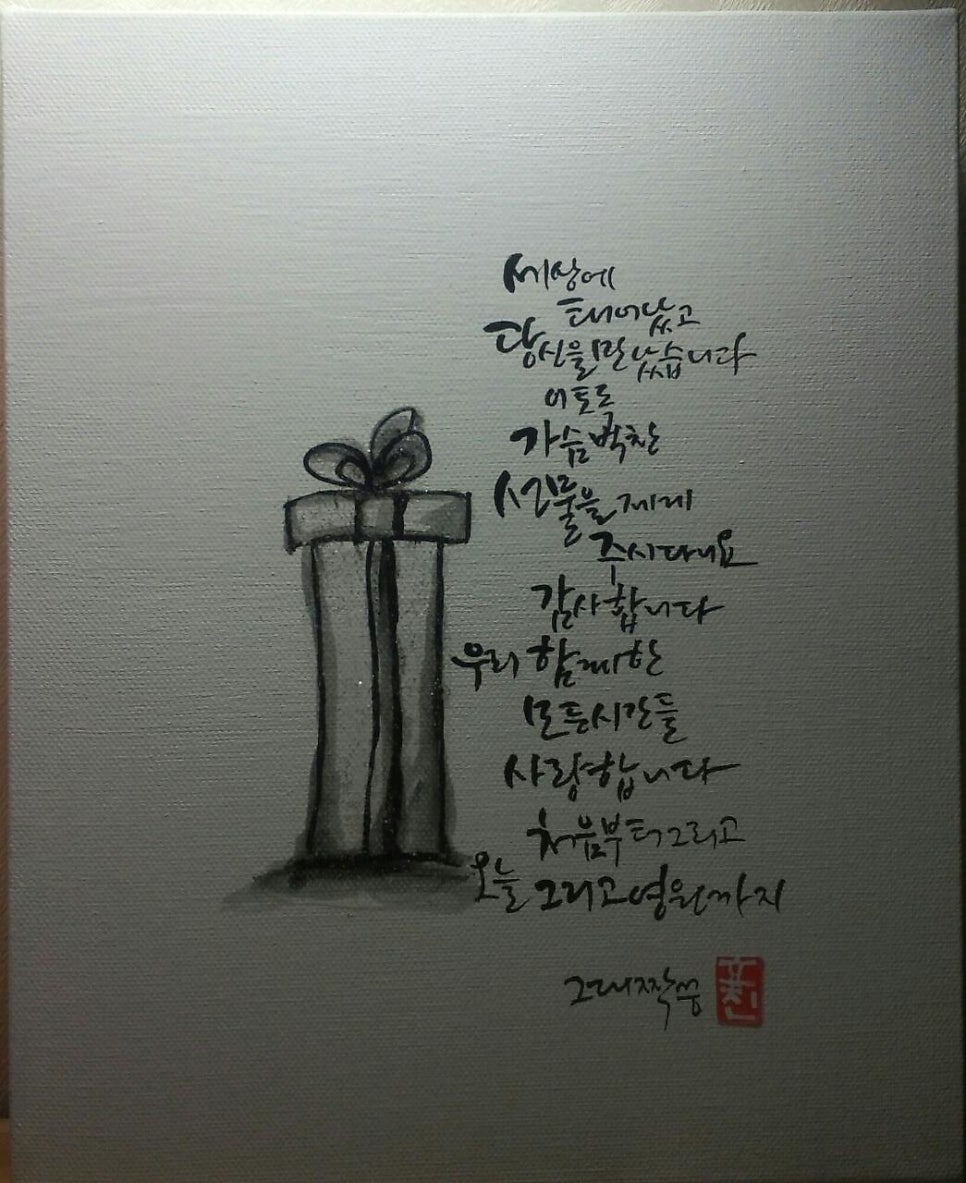 세상에
태어났고
당신을 만났습니다
이토록
가슴벅찬
선물을 제게
주시다니요
감사합니다
우리 함께한
모든시간들
사랑합니다
처음부터 그리고
오늘 그리고 영원까지
그대짝꿍